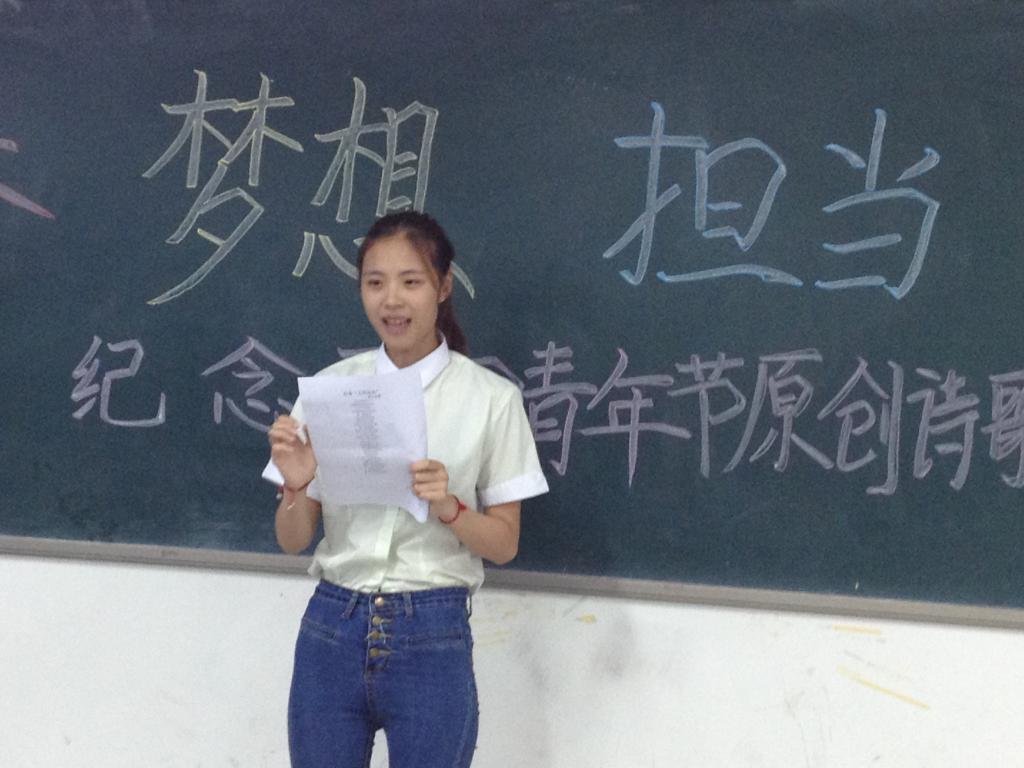 梦想 担当
纪念 青年节原创诗歌